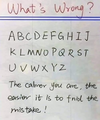 What's Wrong?
A B C D E F G H I J
K L M N O P Q R S T
U V W X Y Z
The calmer you are, the
easier it is to find the
mistake!